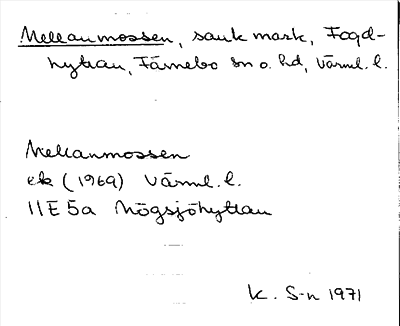 Mellanmossen, sank mark, Fogd-
hyttan, Färnebo sn o. hd, Värml. l.
Mellanmossen
ek (1969) Värml. l.
11E5a Högsjöhyttan
K. S-n 1971